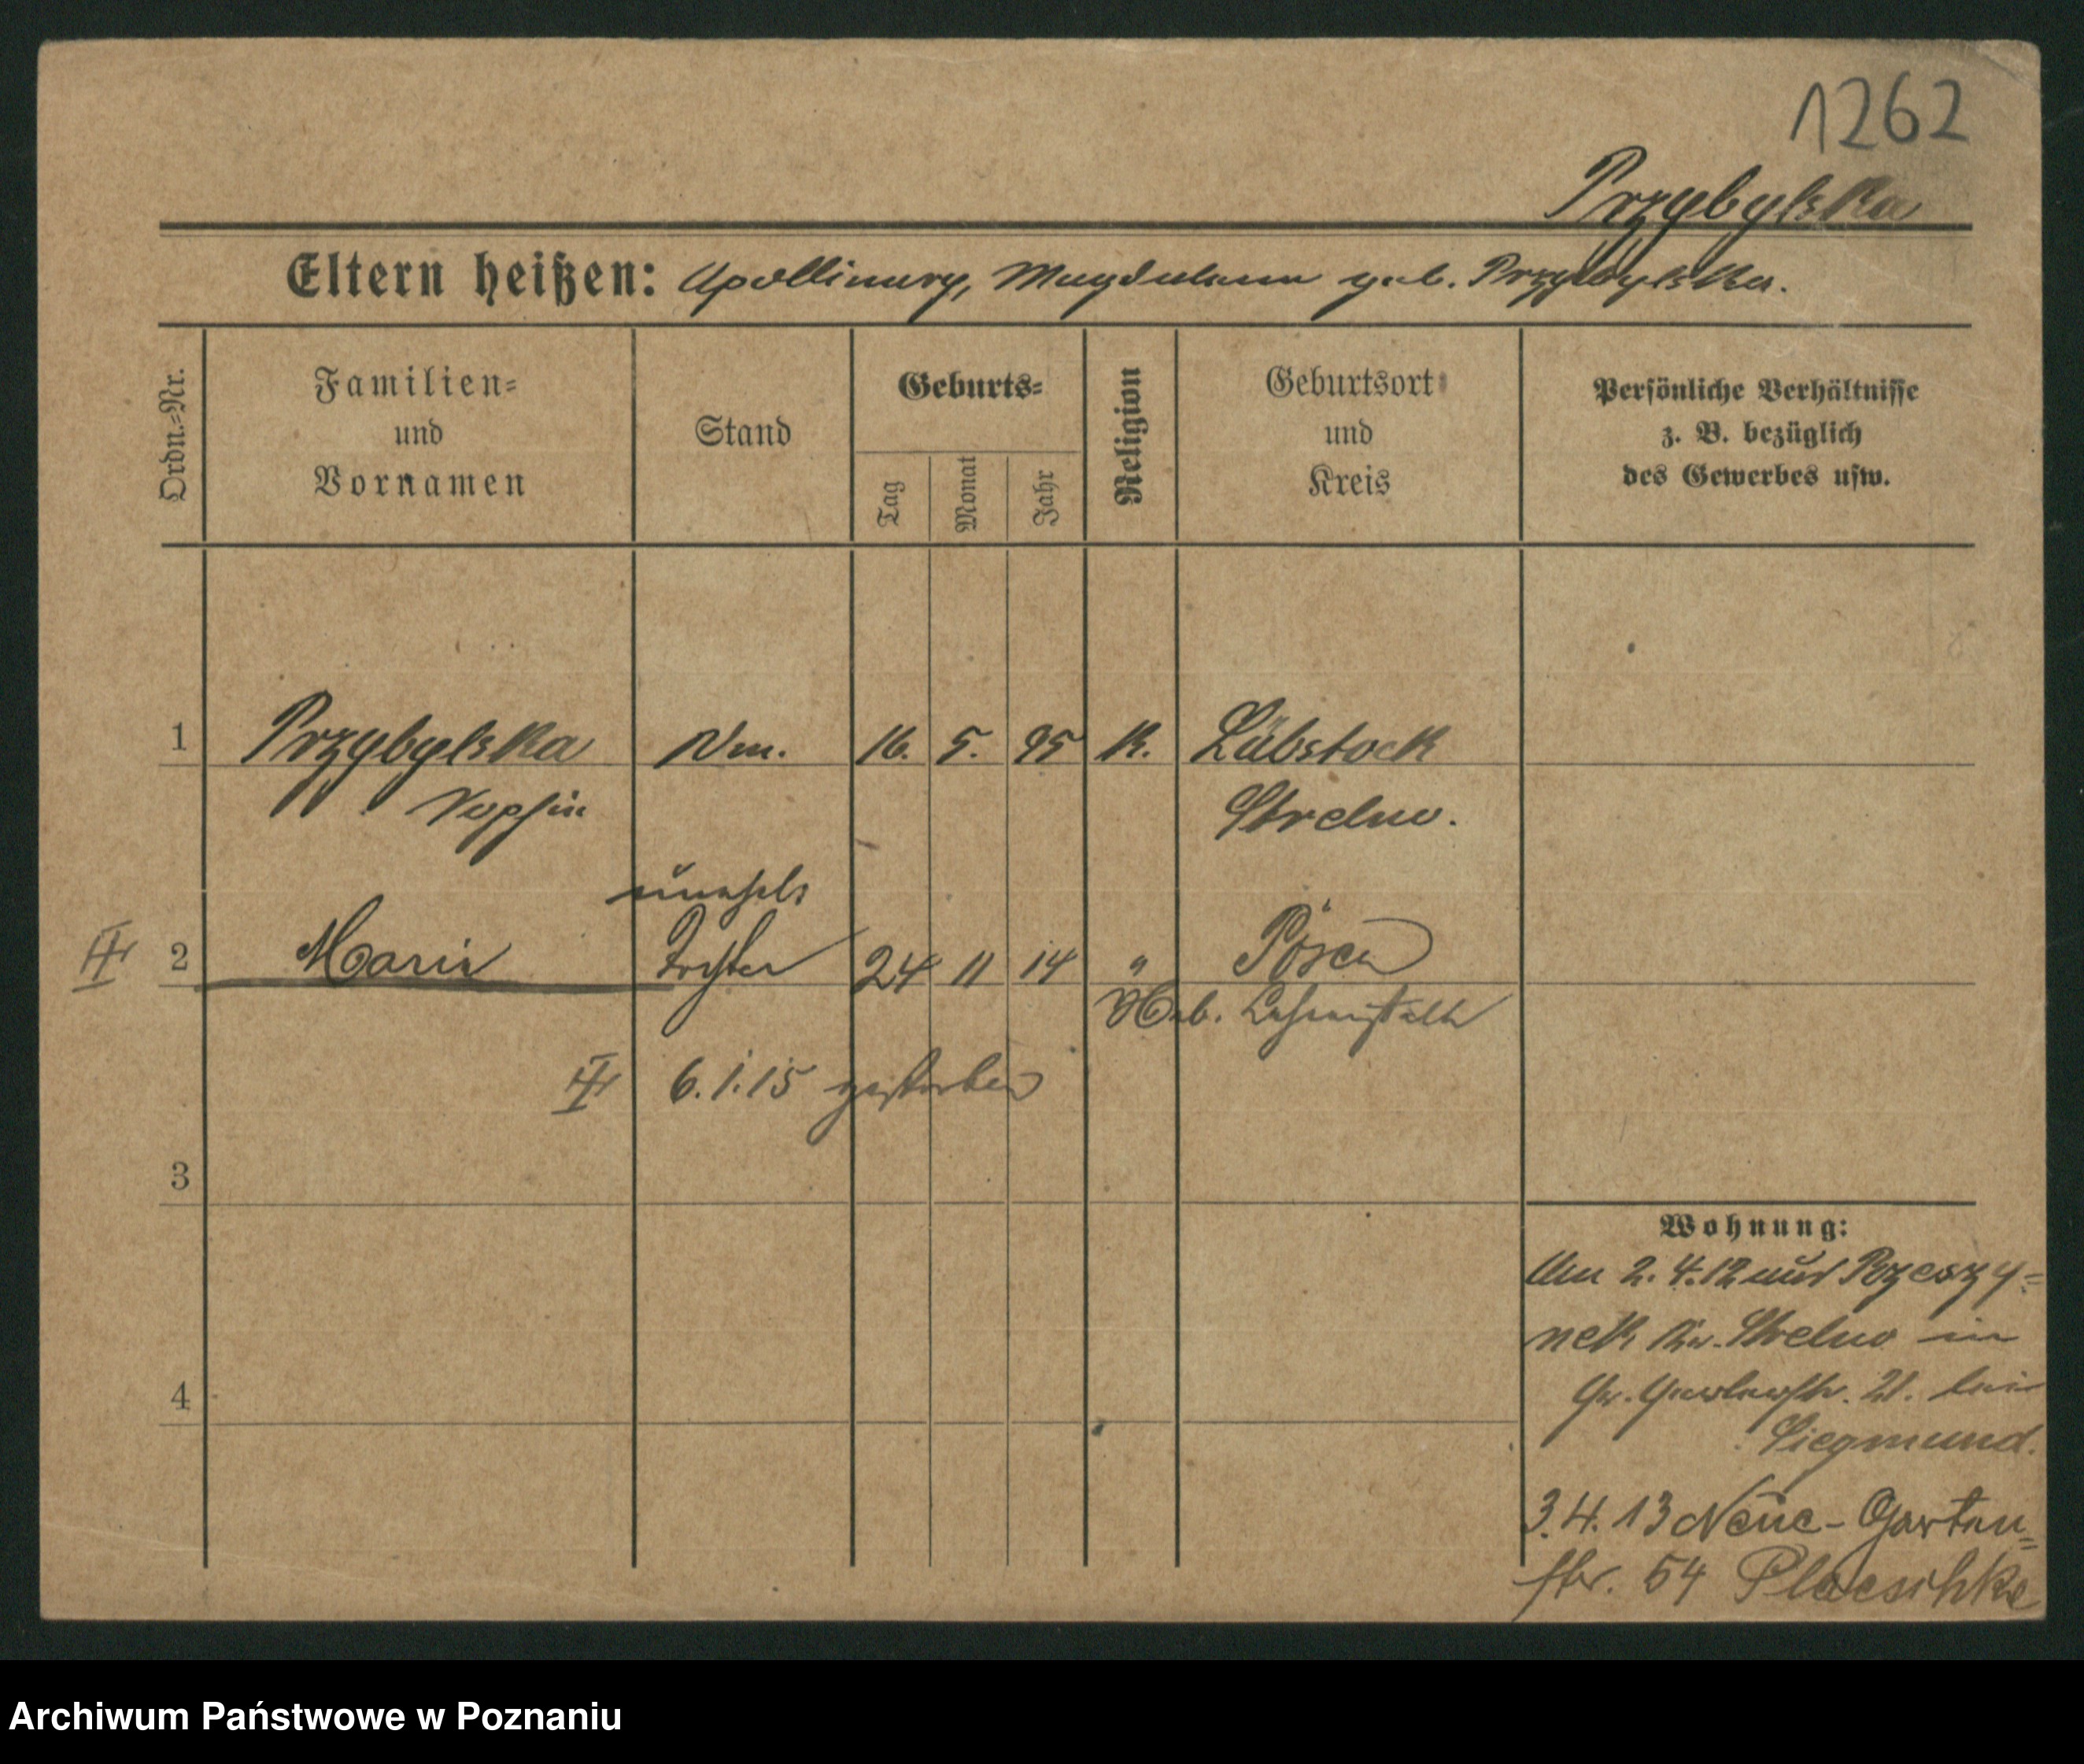 1262
Przybylska
Eltern heißen: Apollinary, Magdalena geb. Przybylska.
Ordn.=Nr.
Familien=
und
Vornamen
Stand
Geburts=
Tag
Monat
Jahr
Religion
Geburtsort
und
Kreis
Persönliche Verhältnisse
z. B. bezüglich
des Gewerbes usw.
1 Przybylska 16. 5. 95 K. Lübstock
Sophie Strelno.
unehel.
2 Maria Tochter 24 11 14 " Posen
Heb. Lehranstalt
6.1.15 gestorben
3
4
Wohnung:
Am 2.4.12 aus Rzeszy=
nek Kr. Strelno in
Gr. Gerberstr. 21. bei
Siegmund.
3.4.13 Neue-Garten=
str. 54 Plaeschke
Archiwum Państwowe w Poznaniu